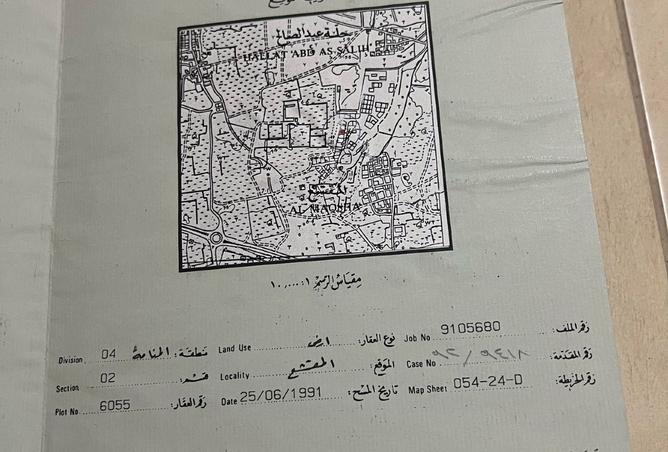 حلة عبد الصالح
HALLAT 'ABD AS SALIH
المقشع
AL MAQSHA'
مقياس الرسم ١:١٠,٠٠٠
Division 04 منطقة: المنامة Land Use ارض نوع العقار: Job No 9105680 رقم الملف:
Section 02 قسم: Locality المقشع الموقع: Case No ٩٤١٨ / ٩٢ رقم المقدمة:
Plot No 6055 رقم العقار: Date 25/06/1991 تاريخ المسح: Map Sheet 054-24-D رقم الخريطة: